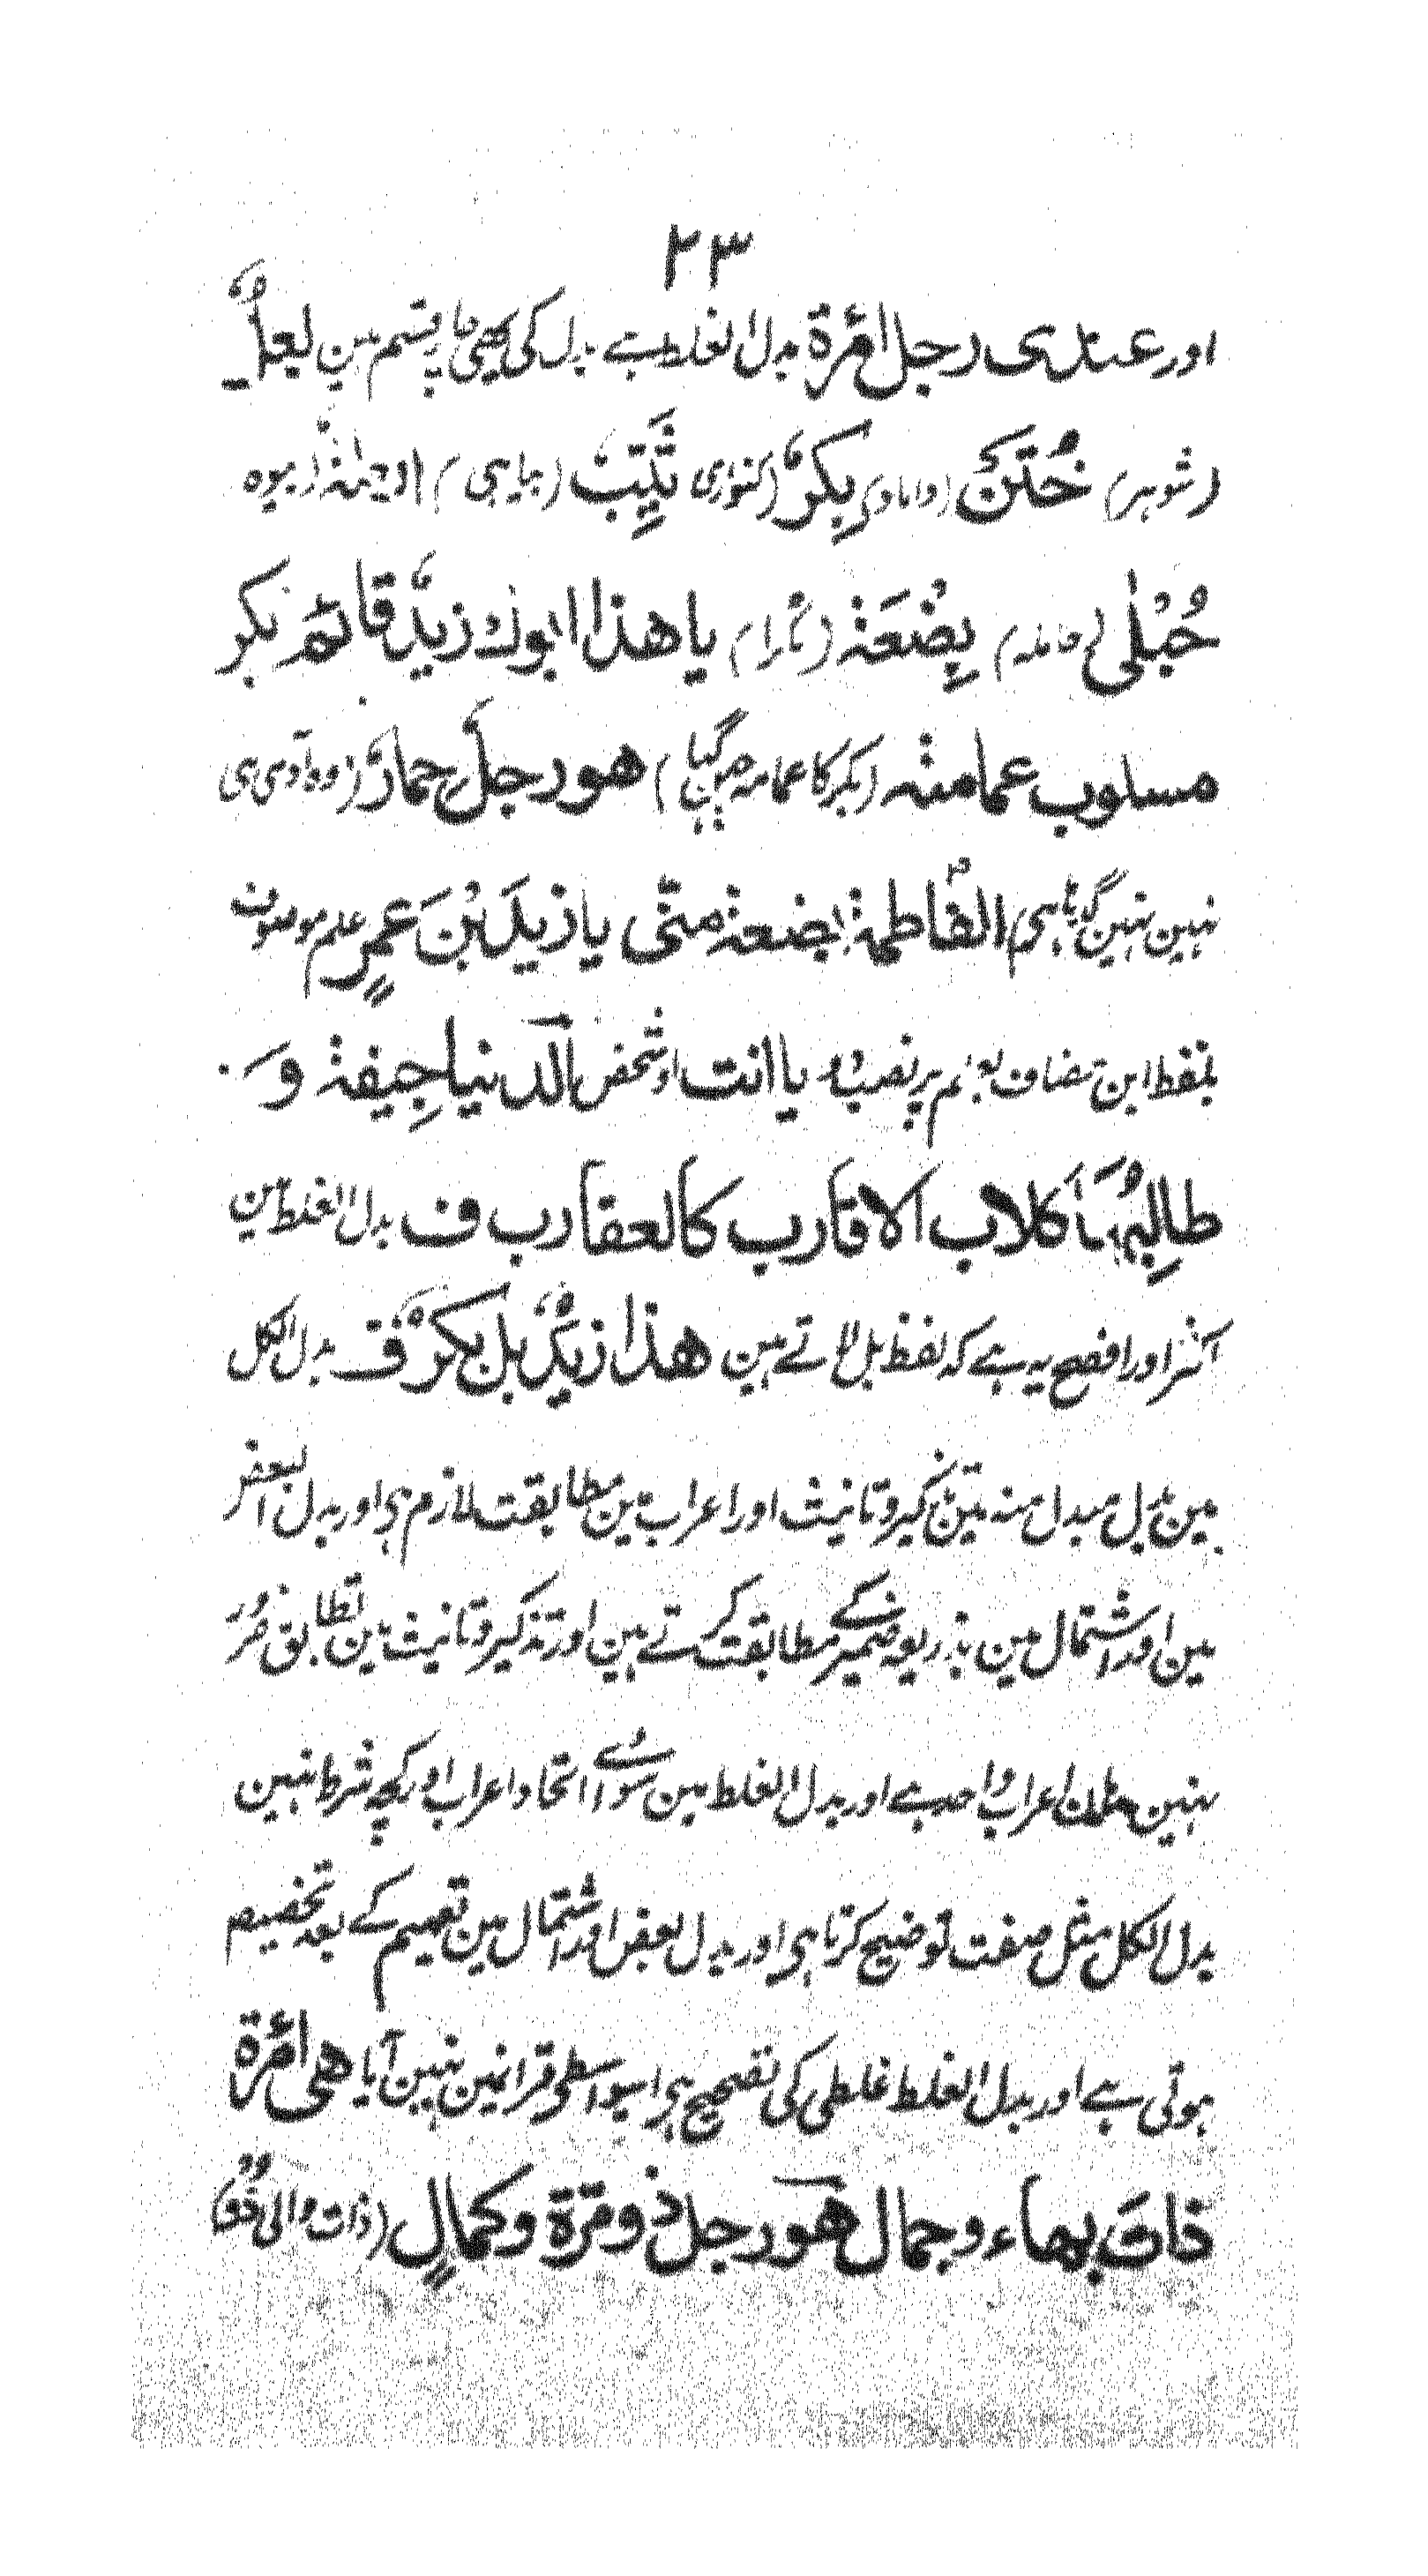 ۲۳
اور عندی رجل امرٔة بدل الغلط ہے بدل کی یہی چار قسم ہین لعلٌ
(شوہر) خُتَنٌ (داماد) بِکرٌ (کنواری) ثَیِّبٌ (بیاہی) اَیِّمہٌ (بیوہ
حُبْلٰی (حاملہ) بِضْعَۃ (ٹکڑا) یا ھذا ابوك زیدٌ قائم بکر
مسلوب عمامتہ (بکر کا عمامہ چھن گیا ہی) ھو رجلٌ حمارٌ (وہ آدمی ہی
نہین نہین گدہا ہی) الفاطمۃُ بضعۃ منّی یا زیدَ بْنَ عمرٍ علم موصوف
بلفظ ابن مضاف بعلم پر نصب ہو یا انت او شخص الدنیا جِیفۃ وَ
طالِبُہَا کلاب الاقارب کالعقارب ف بدل الغلط مین
اکثر اور افصح یہ ہے کہ لفظ بل لاتے ہین ھذا زیدٌ بل بکرٌ ف بدل الکل
مین بدل مبدل منہ مین تذکیر و تانیث اور اعراب مین مطابقت لازم ہی اور بدل البعض
مین اور اشتمال مین بذریعہ ضمیر کے مطابقت کرتے ہین اور تذکیر و تانیث مین تطابق ضرور
نہین مطلق اعراب واحد ہے اور بدل الغلط مین سوائے اتحاد اعراب اور کچھ شرط نہین
بدل الکل مثل صفت توضیح کرتا ہی اور بدل بعض اور اشتمال مین تعمیم کے بعد تخصیص
ہوتی ہے اور بدل الغلط غلطی کی تصحیح ہی اسیواسطی قرآنمین نہین آیا ھی امرٔة
ذات بھاء وجمال ھو رجل ذو مرّة وکمالٍ (ذات والی ذو